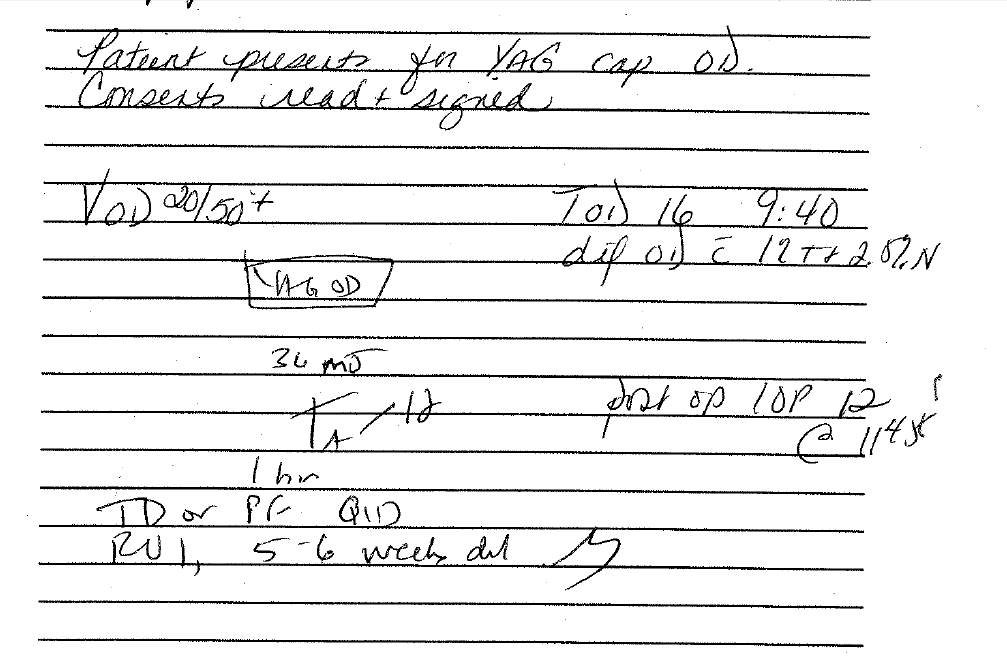 Patient presents for YAG cap OD.
Consents read + signed
VOD 20/50+ TOD 16 9:40
dil OD c̄ 1% T + 2.5% N
YAG OD
36 mJ
post op IOP 12
TA / 12
@ 11:45
1 hr
TD or PF QID
RV 1, 5-6 weeks dil